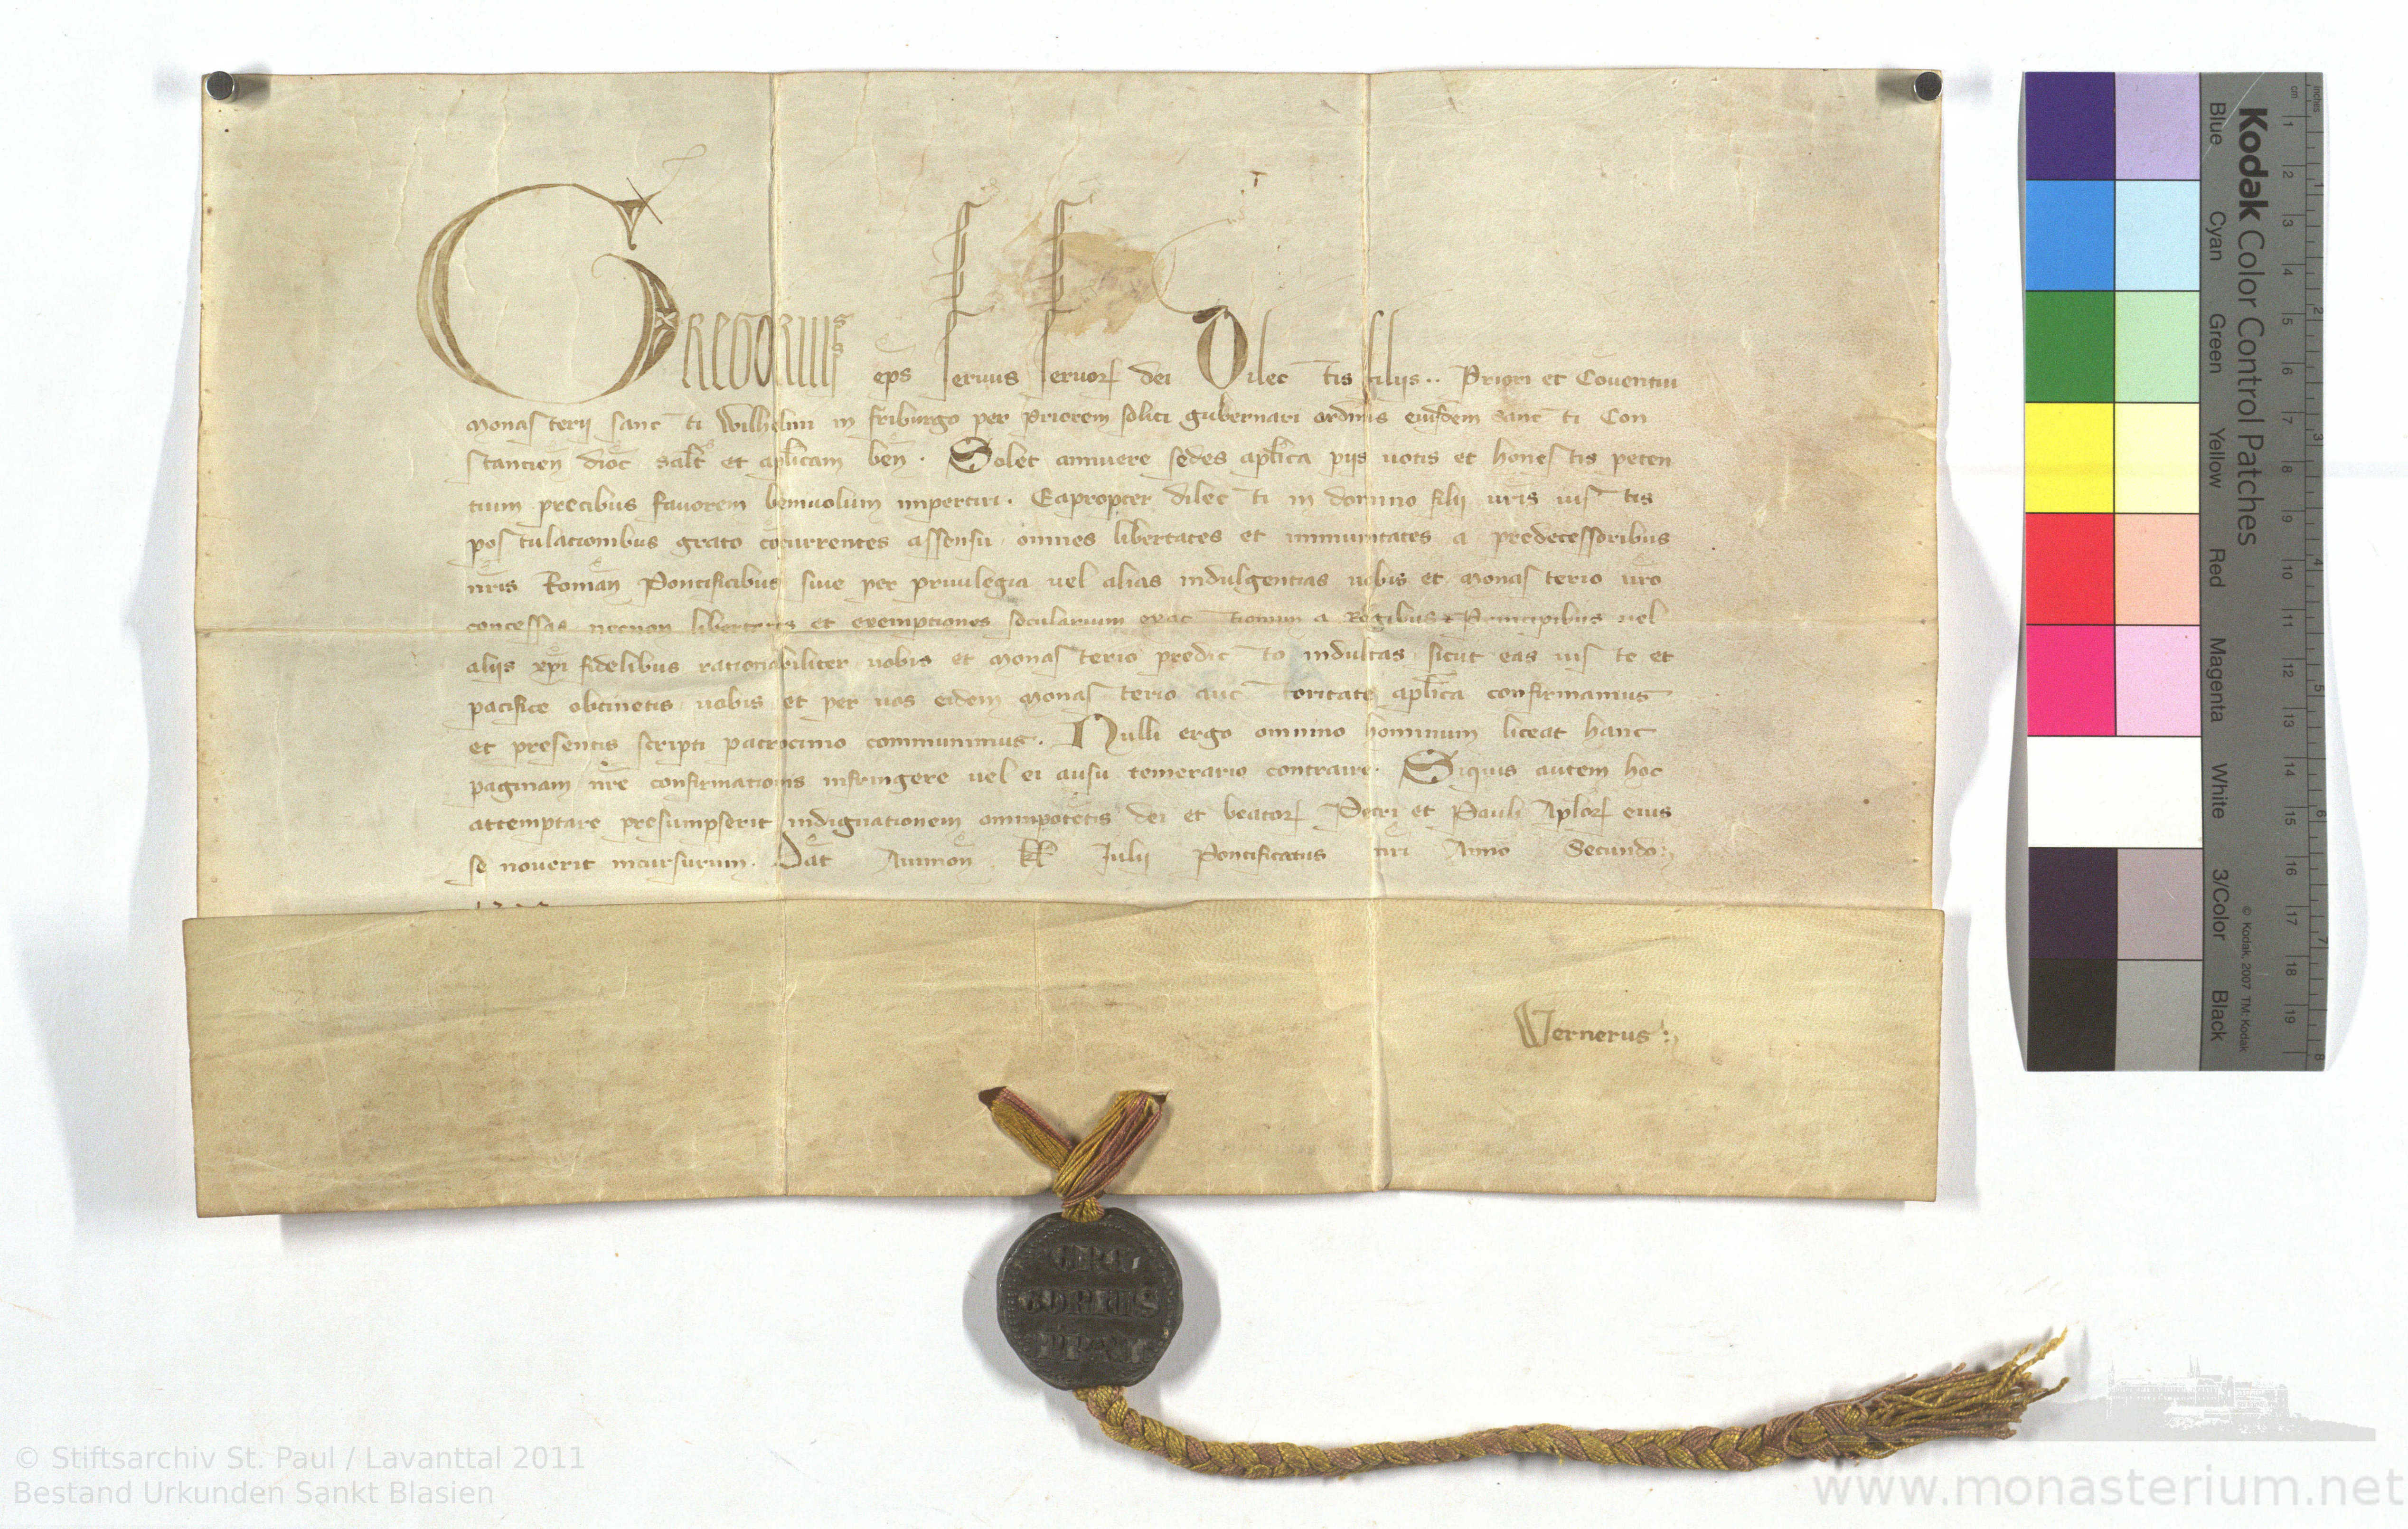 GREGORIUS ep̄s seruus seruoꝝ dei Dilectis filijs ·· Priori et Cōuentui
Monasterij sancti Wilhelmi in friburgo per Priorem soliti gubernari ordinis eiusdem sancti Con
stantieñ dioc̄ salt̄ et apl̄icam beñ . Solet annuere sedes apl̄ica pijs uotis et honestis peten
tium precibus fauorem beniuolum impertiri . Eapropter dilecti in domino filij ur̄is iustis
postulationibus grato cōcurrentes assensu omnes libertates et immunitates a predecessoribus
nr̄is Romañ Pontificibus siue per priuilegia uel alias indulgentias uobis et Monasterio ur̄o
concessas necnon libertates et exemptiones secularium exactionum a Regibus et Principibus uel
alijs xp̄i fidelibus rationabiliter uobis et Monasterio predicto indultas sicut eas iuste et
pacifice obtinetis uobis et per uos eidem Monasterio auctoritate apl̄ica confirmamus
et presentis scripti patrocinio communimus . Nulli ergo omnino hominum liceat hanc
paginam nr̄e confirmationis infringere uel ei ausu temerario contraire . Siquis autem hoc
attemptare presumpserit indignationem omnipotētis dei et beatoꝝ Petri et Pauli Apl̄oꝝ eius
se nouerit incursurum . Dat̄ Auinioñ kl̄ Julij Pontificatus nr̄i Anno Secundo
Wernerus :
GRE
GORIUS
PP XI
Kodak Color Control Patches
Blue Cyan Green Yellow Red Magenta White 3/Color Black
© Kodak, 2007 TM: Kodak
cm 1 2 3 4 5 6 7 8 9 10 11 12 13 14 15 16 17 18 19
inches 1 2 3 4 5 6 7 8
© Stiftsarchiv St. Paul / Lavanttal 2011
Bestand Urkunden Sankt Blasien
www.monasterium.net